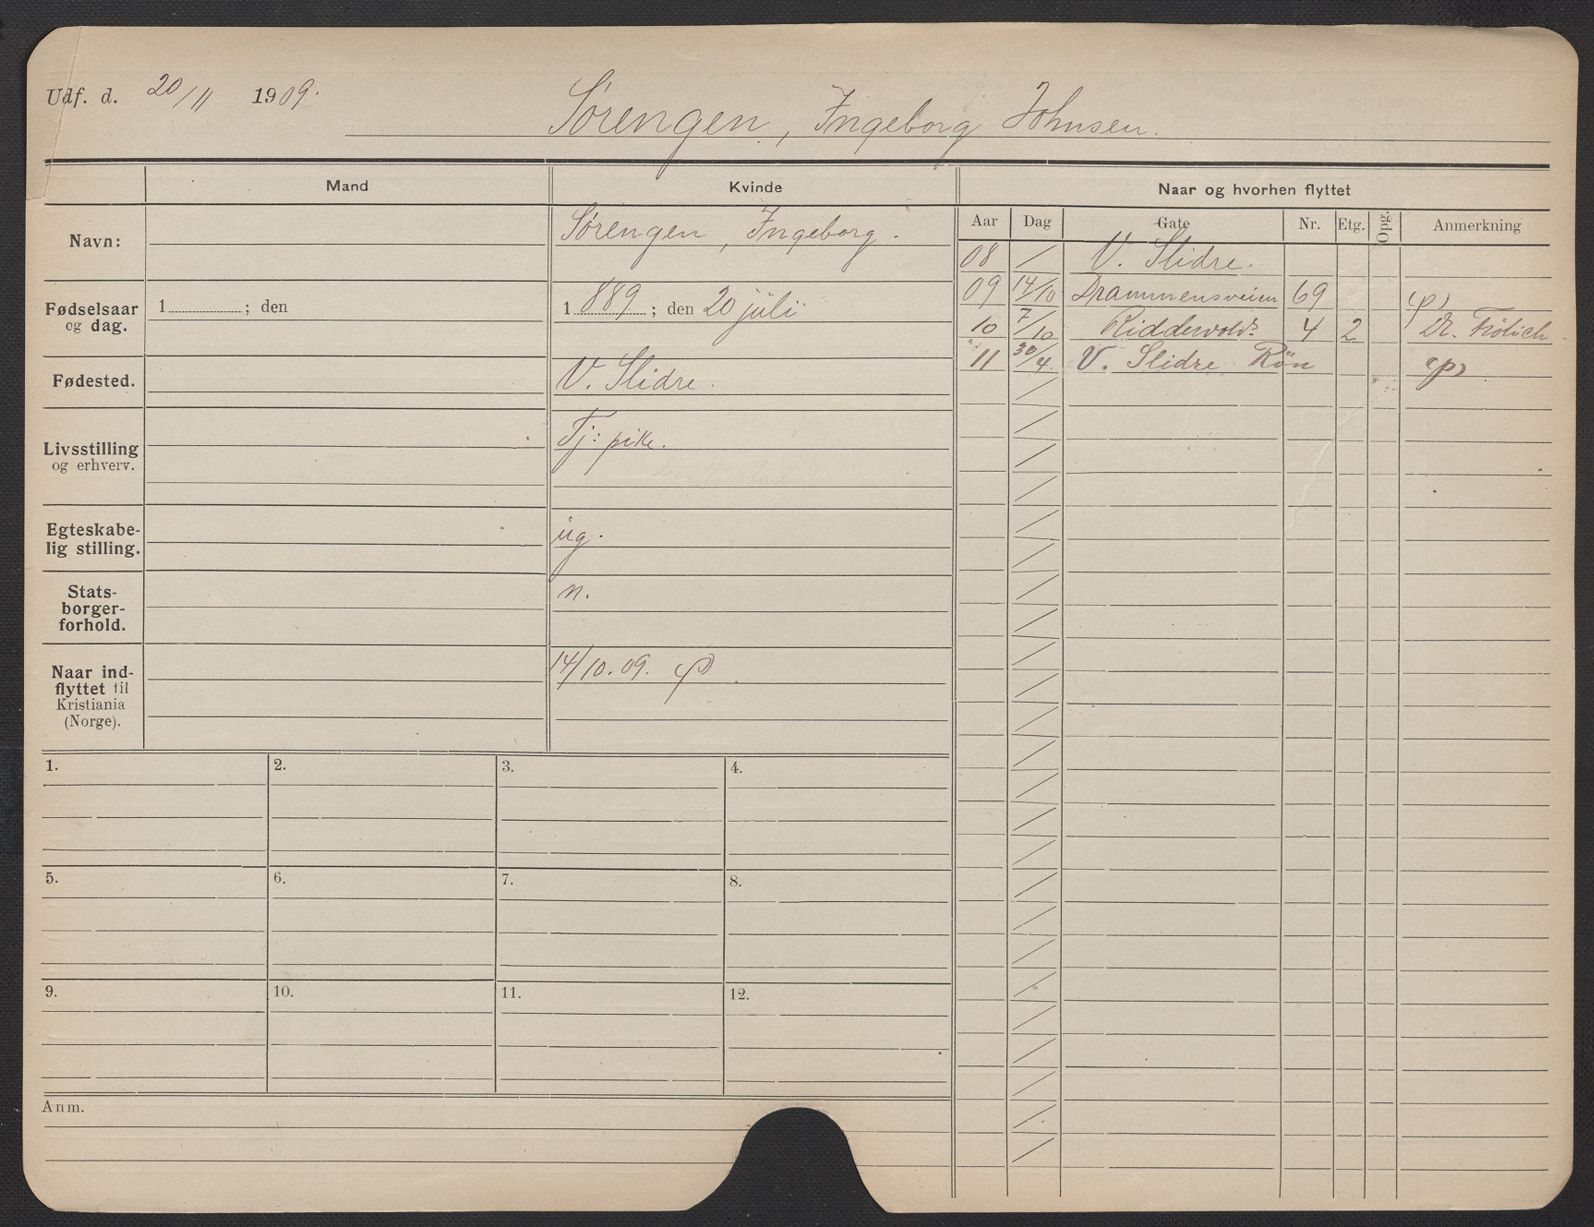 Udf. d. 20/11 1909.
Sørengen, Ingeborg Johnsen.
Mand Kvinde Naar og hvorhen flyttet
Aar Dag Gate Nr. Etg. Opg. Anmerkning
Navn: Sørengen, Ingeborg.
Fødselsaar og dag. 1 ; den 1889; den 20 juli
Fødested. V. Slidre.
Livsstilling og erhverv. Tj: pike.
Egteskabe-
lig stilling. ug.
Stats-
borger-
forhold. n.
Naar ind-
flyttet til
Kristiania
(Norge). 14/10.09. (p)
08 / V. Slidre.
09 14/10 Drammensveien 69 (p)
10 7/10 Riddervolds 4 2 Dr. Frölich
11 30/4 V. Slidre Røn (p)
1. 2. 3. 4.
5. 6. 7. 8.
9. 10. 11. 12.
Anm.